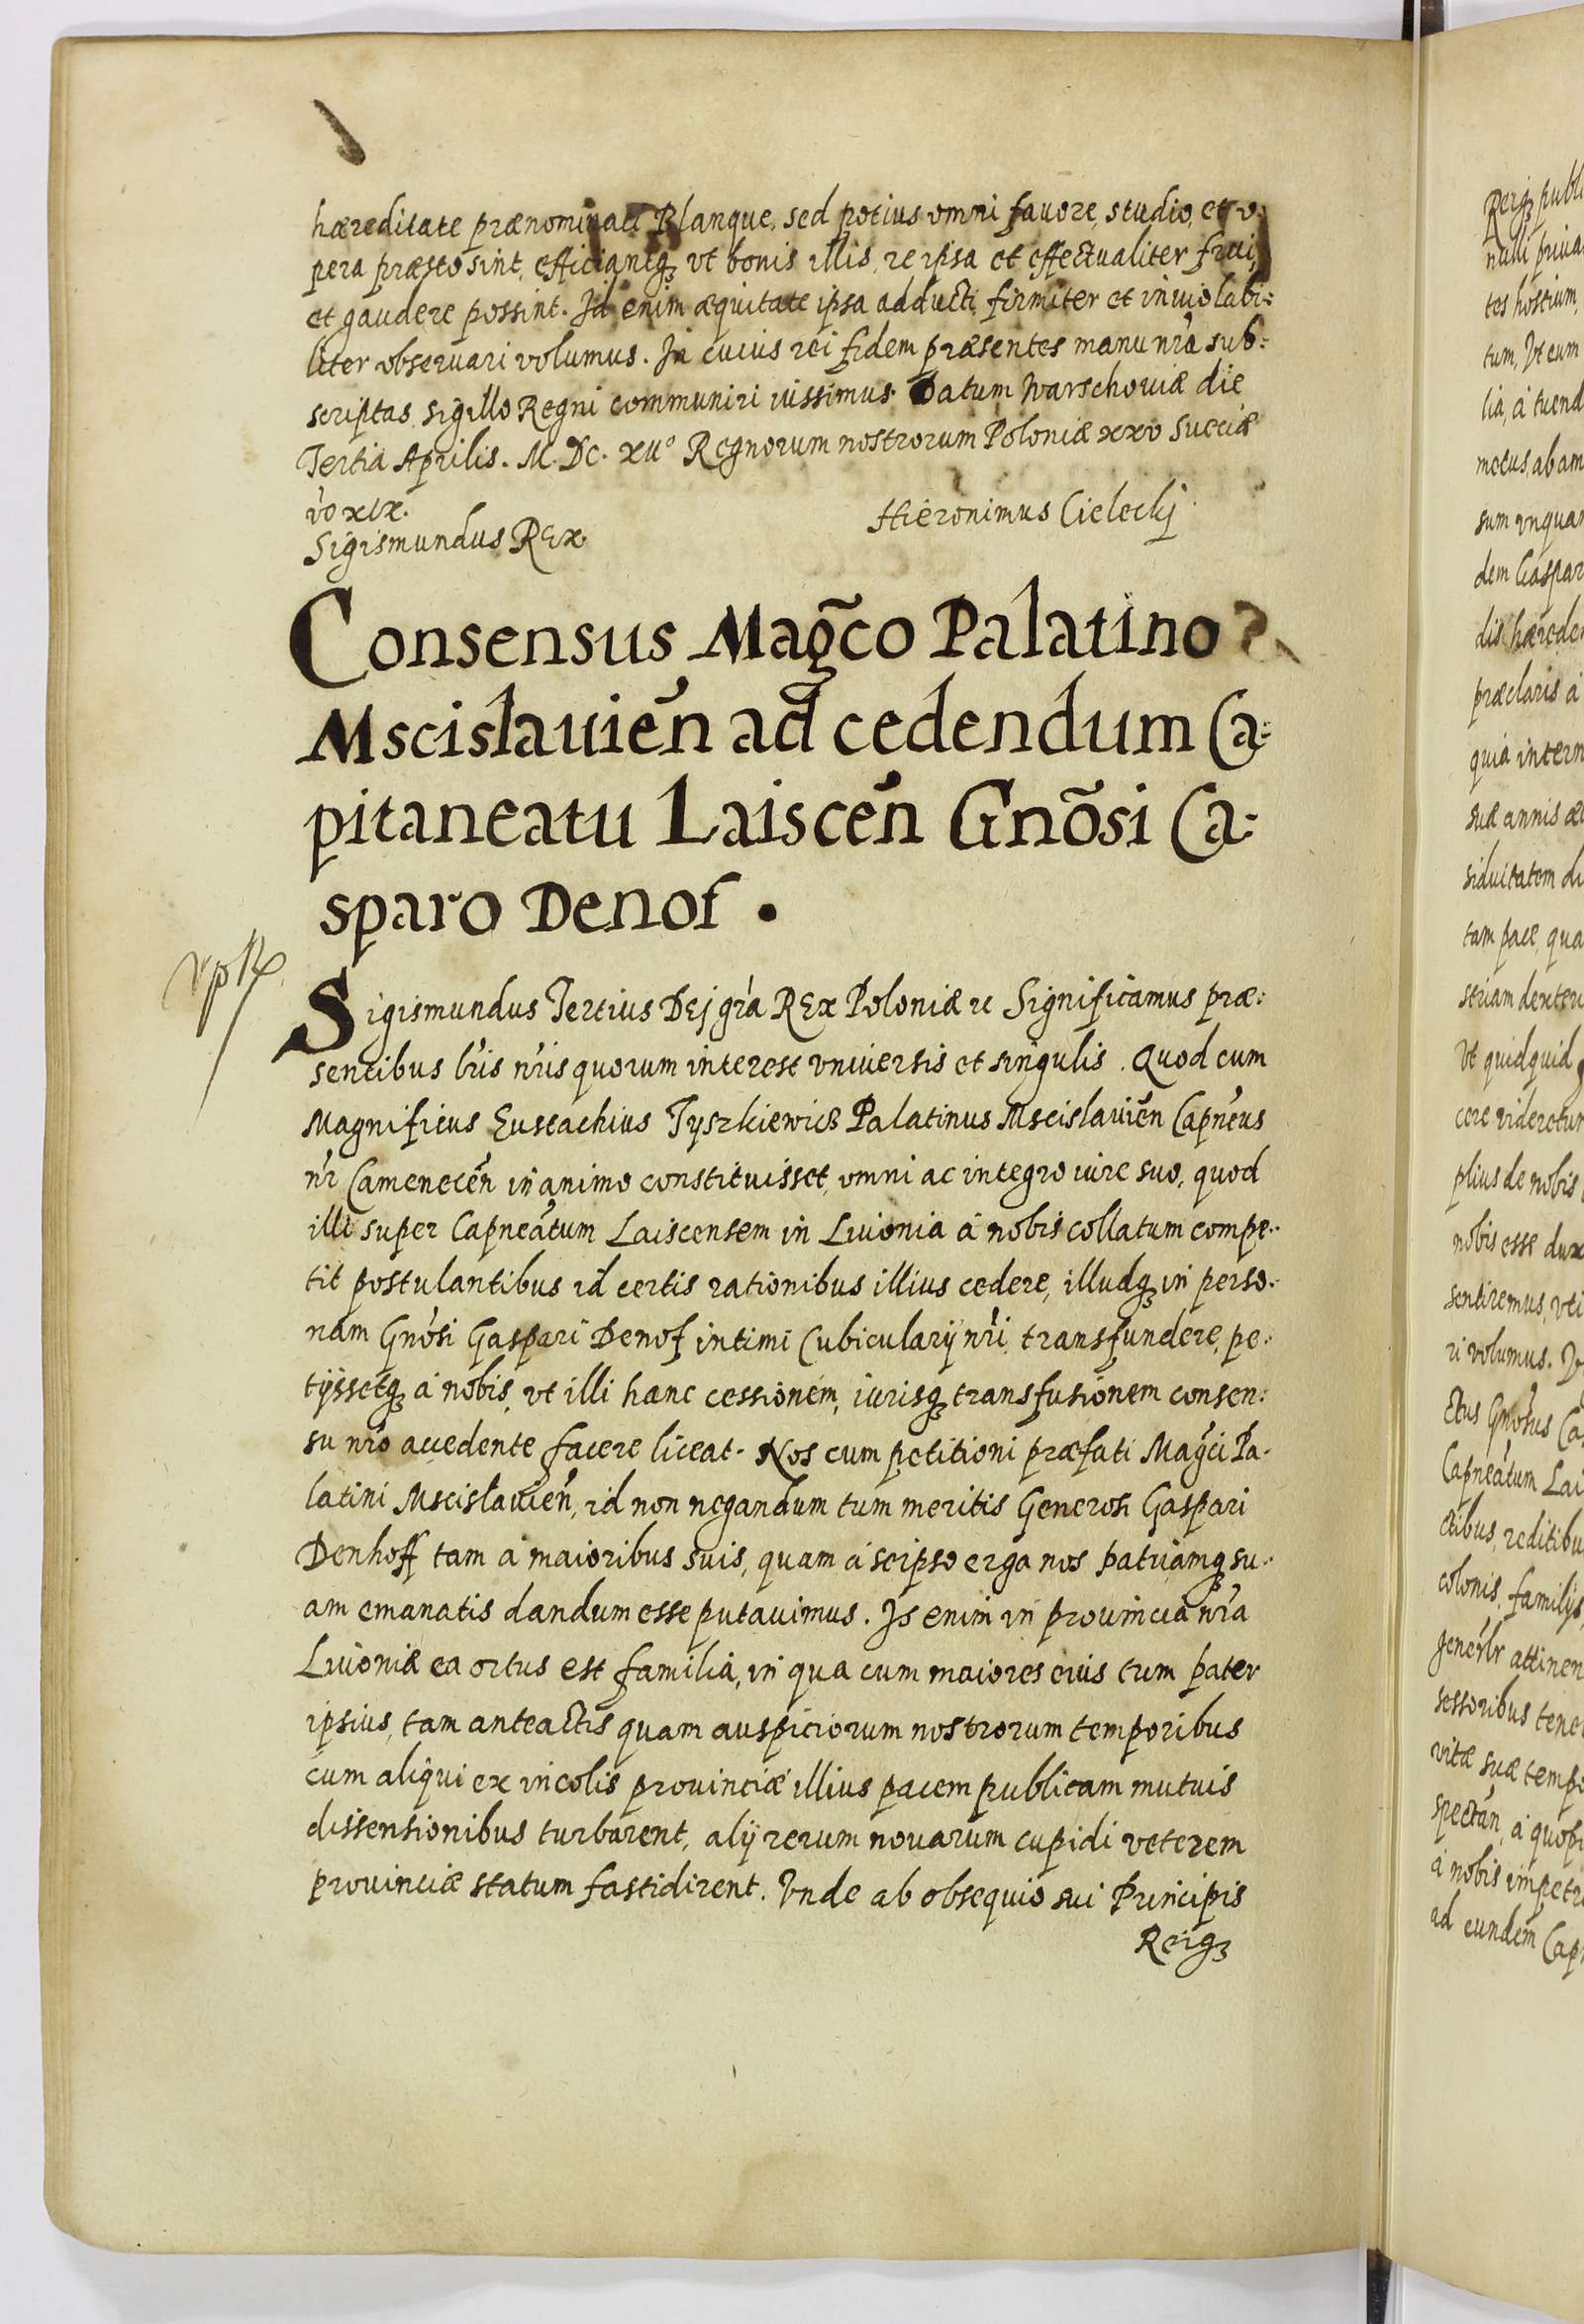 hæreditate prænominati Blanque, sed potius omni fauore, studio, et o:
pera præsto sint, efficiantq₃ vt bonis illis, re ipsa et effectualiter frui,
et gaudere possint. Id enim æquitate ipsa adducti firmiter et inuiolabi:
liter obseruari volumus. In cuius rei fidem præsentes manu nr̃a sub:
scriptas sigillo Regni communiri iussimus. Datum Warschouiæ die
Tertia Aprilis. M. DC. XII° Regnorum nostrorum Poloniæ xxv Sueciæ
vo xix.
Sigismundus REx. Hieronimus Cieleckj
Consensus Mag̃co Palatino
Mscislauień ad cedendum Ca:
pitaneatu Laisceń Gnõsi Ca:
sparo Denof.
Sigismundus Tertius DEj gr̃a REx Poloniæ rc Significamus præ:
sentibus lr̃is nr̃is quorum interest vniuersis et singulis. Quod cum
Magnificus Eustachius Tyszkiewicz Palatinus Mscislauień Capnẽus
nr̃ Cameneceń in animo constituisset, omni ac integro iure suo, quod
illi super Capneãtum Laiscensem in Liuonia á nobis collatum compe:
tit postulantibus id certis rationibus illius cedere, illudq₃ in perso:
nam Gnõsi Gaspari Denof intimi Cubicularij nr̃i, transfundere, pe:
tijssetq₃ á nobis, vt illi hanc cessionem, iurisq₃ transfusionem consen:
su nr̃o accedente facere liceat. Nos cum petitioni præfati Mag̃ci Pa:
latini Mscislauień, id non negandum tum meritis Generosi Gaspari
Denhoff tam á maioribus suis, quam á seipso erga nos patriamq₃ su:
am emanatis dandum esse putauimus. Is enim in prouincia nr̃a
Liuoniæ ea ortus est familia, in qua cum maiores eius tum pater
ipsius, tam anteactis quam auspiciorum nostrorum temporibus
cum aliqui ex incolis prouinciæ illius pacem publicam mutuis
dissensionibus turbarent, alij rerum nouarum cupidi veterem
prouinciæ statum fastidirent. Vnde ab obsequio sui Principis
Reiq₃
Reiq₃ publi
tes hostium,
tum, Vt eum
lia, á tuend
metus, ab am
sum vnquam
dem Gaspar
dis hærede
præclaris á
quia intern
suæ annis æ
siduitatem di
tam pace, qua
Vt quidquid
cere videretur
plius de nobis
nobis esse dux
sentiremus, vti
ri volumus.
Capneãtum Lai
ctibus, reditibu
colonis, familijs
attinen
sessoribus tene
vitæ suæ temp
á quop
á nobis impetr
ad eundem Cap